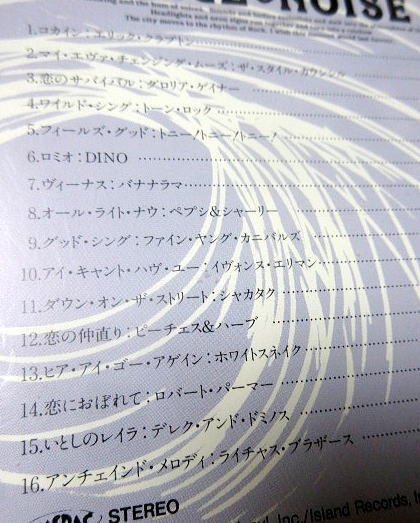 NOISE
The city moves to the rhythm of Rock.
1.コカイン:エリック・クラプトン
2.マイ・エヴァ・チェンジング・ムーズ:ザ・スタイル・カウンシル
3.恋のサバイバル:グロリア・ゲイナー
4.ワイルド・シング:トーン・ロック
5.フィールズ・グッド:トニー/トニー/トニー/
6.ロミオ:DINO
7.ヴィーナス:バナナラマ
8.オール・ライト・ナウ:ペプシ&シャーリー
9.グッド・シング:ファイン・ヤング・カニバルズ
10.アイ・キャント・ハヴ・ユー:イヴォンヌ・エリマン
11.ダウン・オン・ザ・ストリート:シャカタク
12.恋の仲直り:ピーチェス&ハーブ
13.ヒア・アイ・ゴー・アゲイン:ホワイトスネイク
14.恋におぼれて:ロバート・パーマー
15.いとしのレイラ:デレク・アンド・ドミノス
16.アンチェインド・メロディ:ライチャス・ブラザース
STEREO
Inc./Island Records,